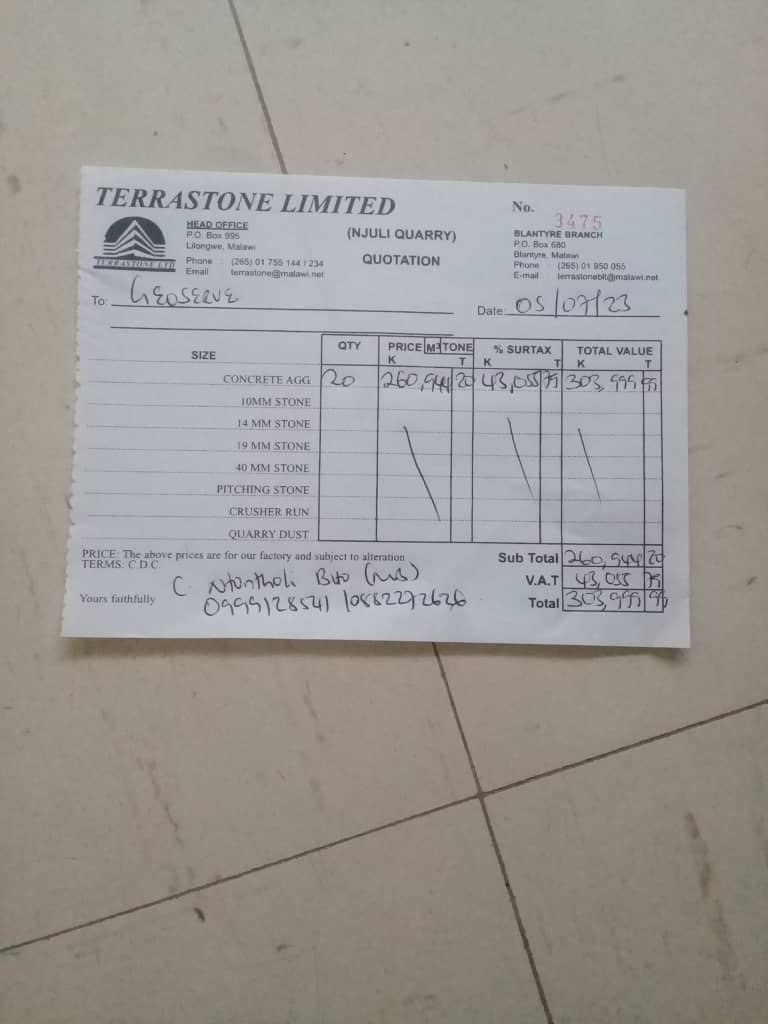 TERRASTONE LIMITED
No. 3475
TERRASTONE LTD
HEAD OFFICE
P.O. Box 995
Lilongwe, Malawi
Phone : (265) 01 755 144 / 234
Email : terrastone@malawi.net
(NJULI QUARRY)
QUOTATION
BLANTYRE BRANCH
P.O. Box 680
Blantyre, Malawi
Phone : (265) 01 950 055
E-mail : terrastoneblt@malawi.net
To: GEOSERVE
Date: 05/07/23
SIZE QTY PRICE M³ TONE K T % SURTAX K T TOTAL VALUE K T
CONCRETE AGG 20 260,944 20 43,055 79 303,999 99
10MM STONE
14 MM STONE
19 MM STONE
40 MM STONE
PITCHING STONE
CRUSHER RUN
QUARRY DUST
PRICE: The above prices are for our factory and subject to alteration
TERMS: C.D.C.
Sub Total 260,944 20
V.A.T 43,055 79
Total 303,999 99
Yours faithfully C.
0999128541 / 0882272626